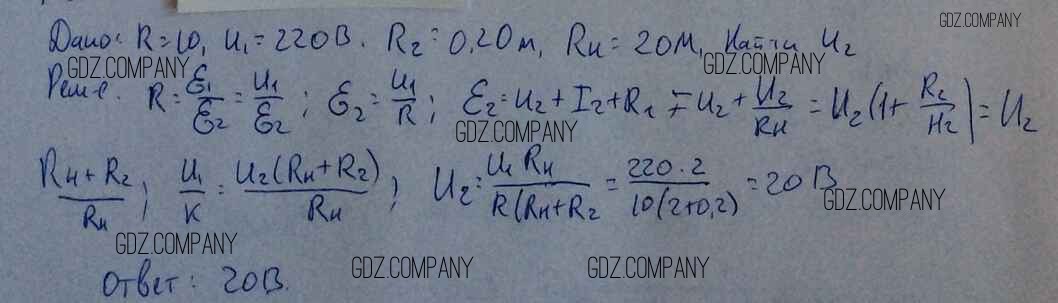 GDZ.COMPANY
Дано: R=10, U₁=220В. R₂=0,2Ом, Rн=2Ом, Найти U₂
GDZ.COMPANY GDZ.COMPANY
Реш-е. R=Ɛ₁/Ɛ₂=U₁/Ɛ₂; Ɛ₂=U₁/R; Ɛ₂=U₂+I₂+R₂=U₂+U₂/Rн=U₂(1+R₂/H₂)=U₂
GDZ.COMPANY
Rн+R₂/Rн; U₁/K=U₂(Rн+R₂)/Rн; U₂=U₁Rн/R(Rн+R₂=220·2/10(2+0,2)=20В
GDZ.COMPANY
GDZ.COMPANY
Ответ: 20В.
GDZ.COMPANY GDZ.COMPANY